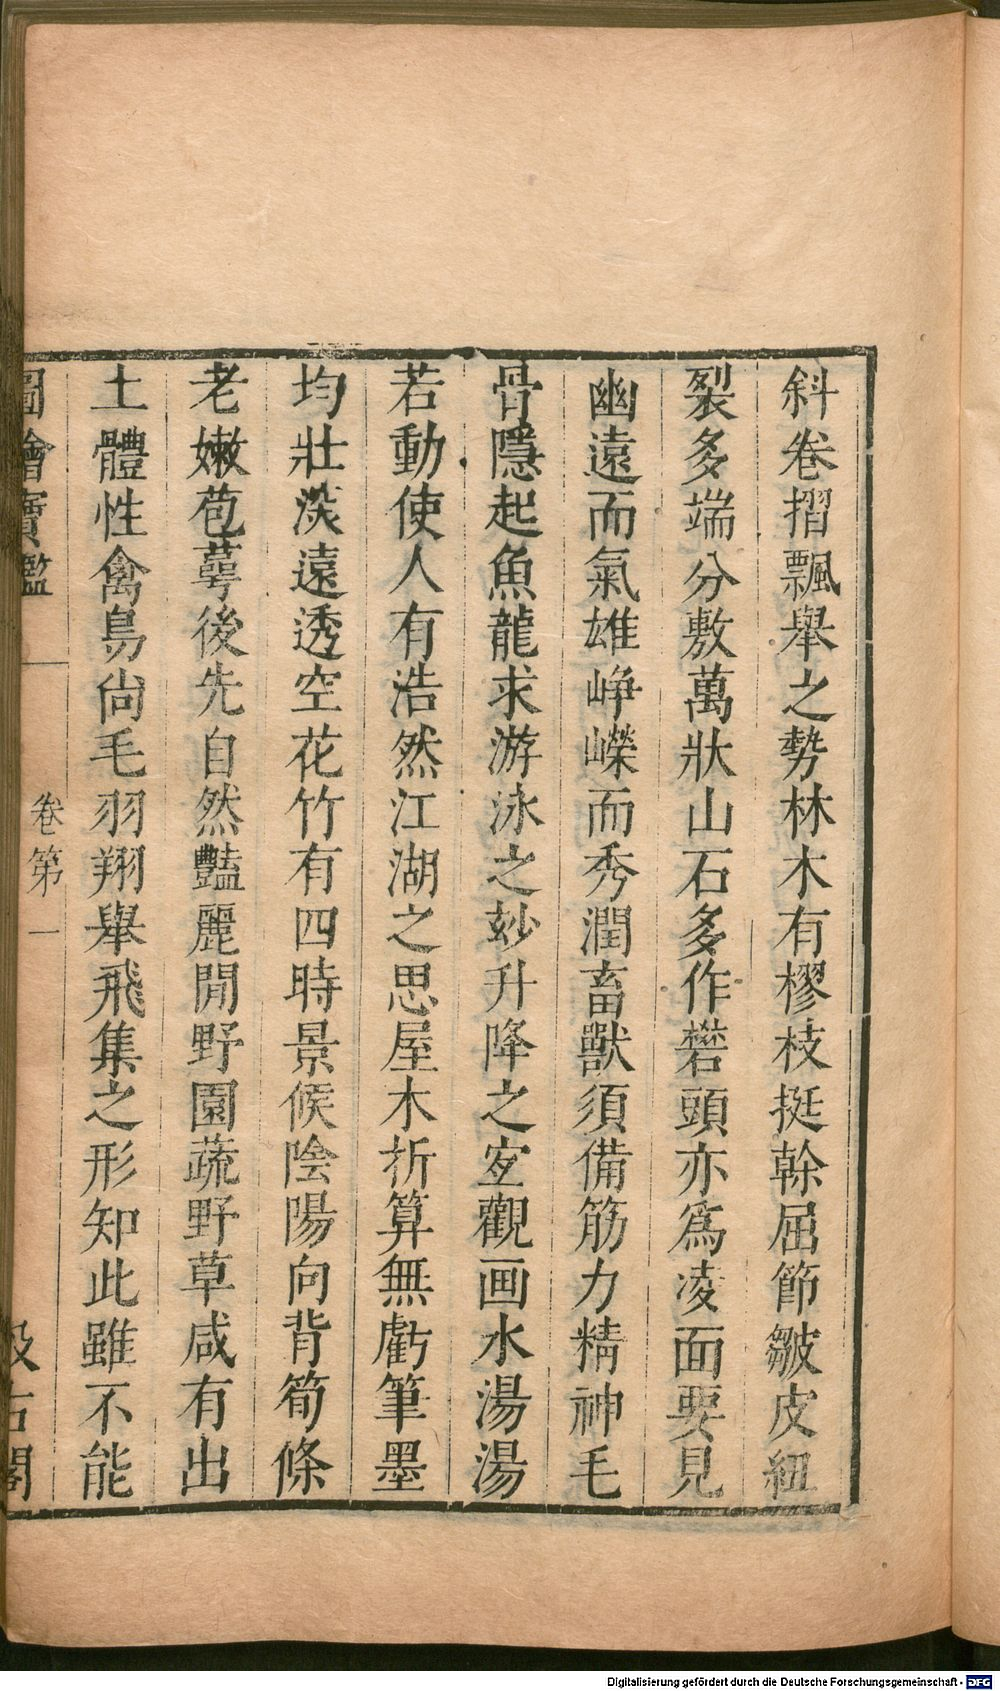 斜卷摺飄舉之勢林木有樛枝挺幹屈節皺皮紐
裂多端分敷萬狀山石多作礬頭亦爲凌面要見
幽遠而氣雄崢嶸而秀潤畜獸須備筋力精神毛
骨隱起魚龍求游泳之妙升降之宐觀画水湯湯
若動使人有浩然江湖之思屋木折算無虧筆墨
均壯淡遠透空花竹有四時景候陰陽向背筍條
老嫩苞萼後先自然豔麗閒野園蔬野草咸有出
土體性禽鳥尙毛羽翔舉飛集之形知此雖不能
圖繪寶鑑 卷第一 汲古閣
Digitalisierung gefördert durch die Deutsche Forschungsgemeinschaft - DFG